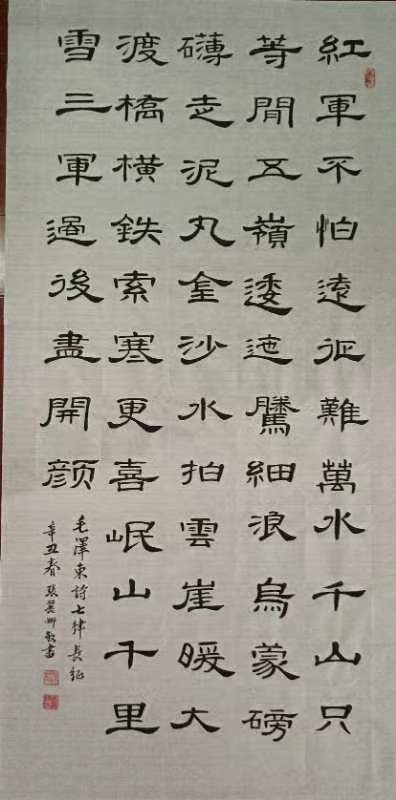 紅軍不怕遠征難萬水千山只
等閒五嶺逶迤騰細浪烏蒙磅
礴走泥丸金沙水拍雲崖暖大
渡橋橫鉄索寒更喜岷山千里
雪三軍過後盡開顔
毛澤東詩七律長征
辛丑春張書